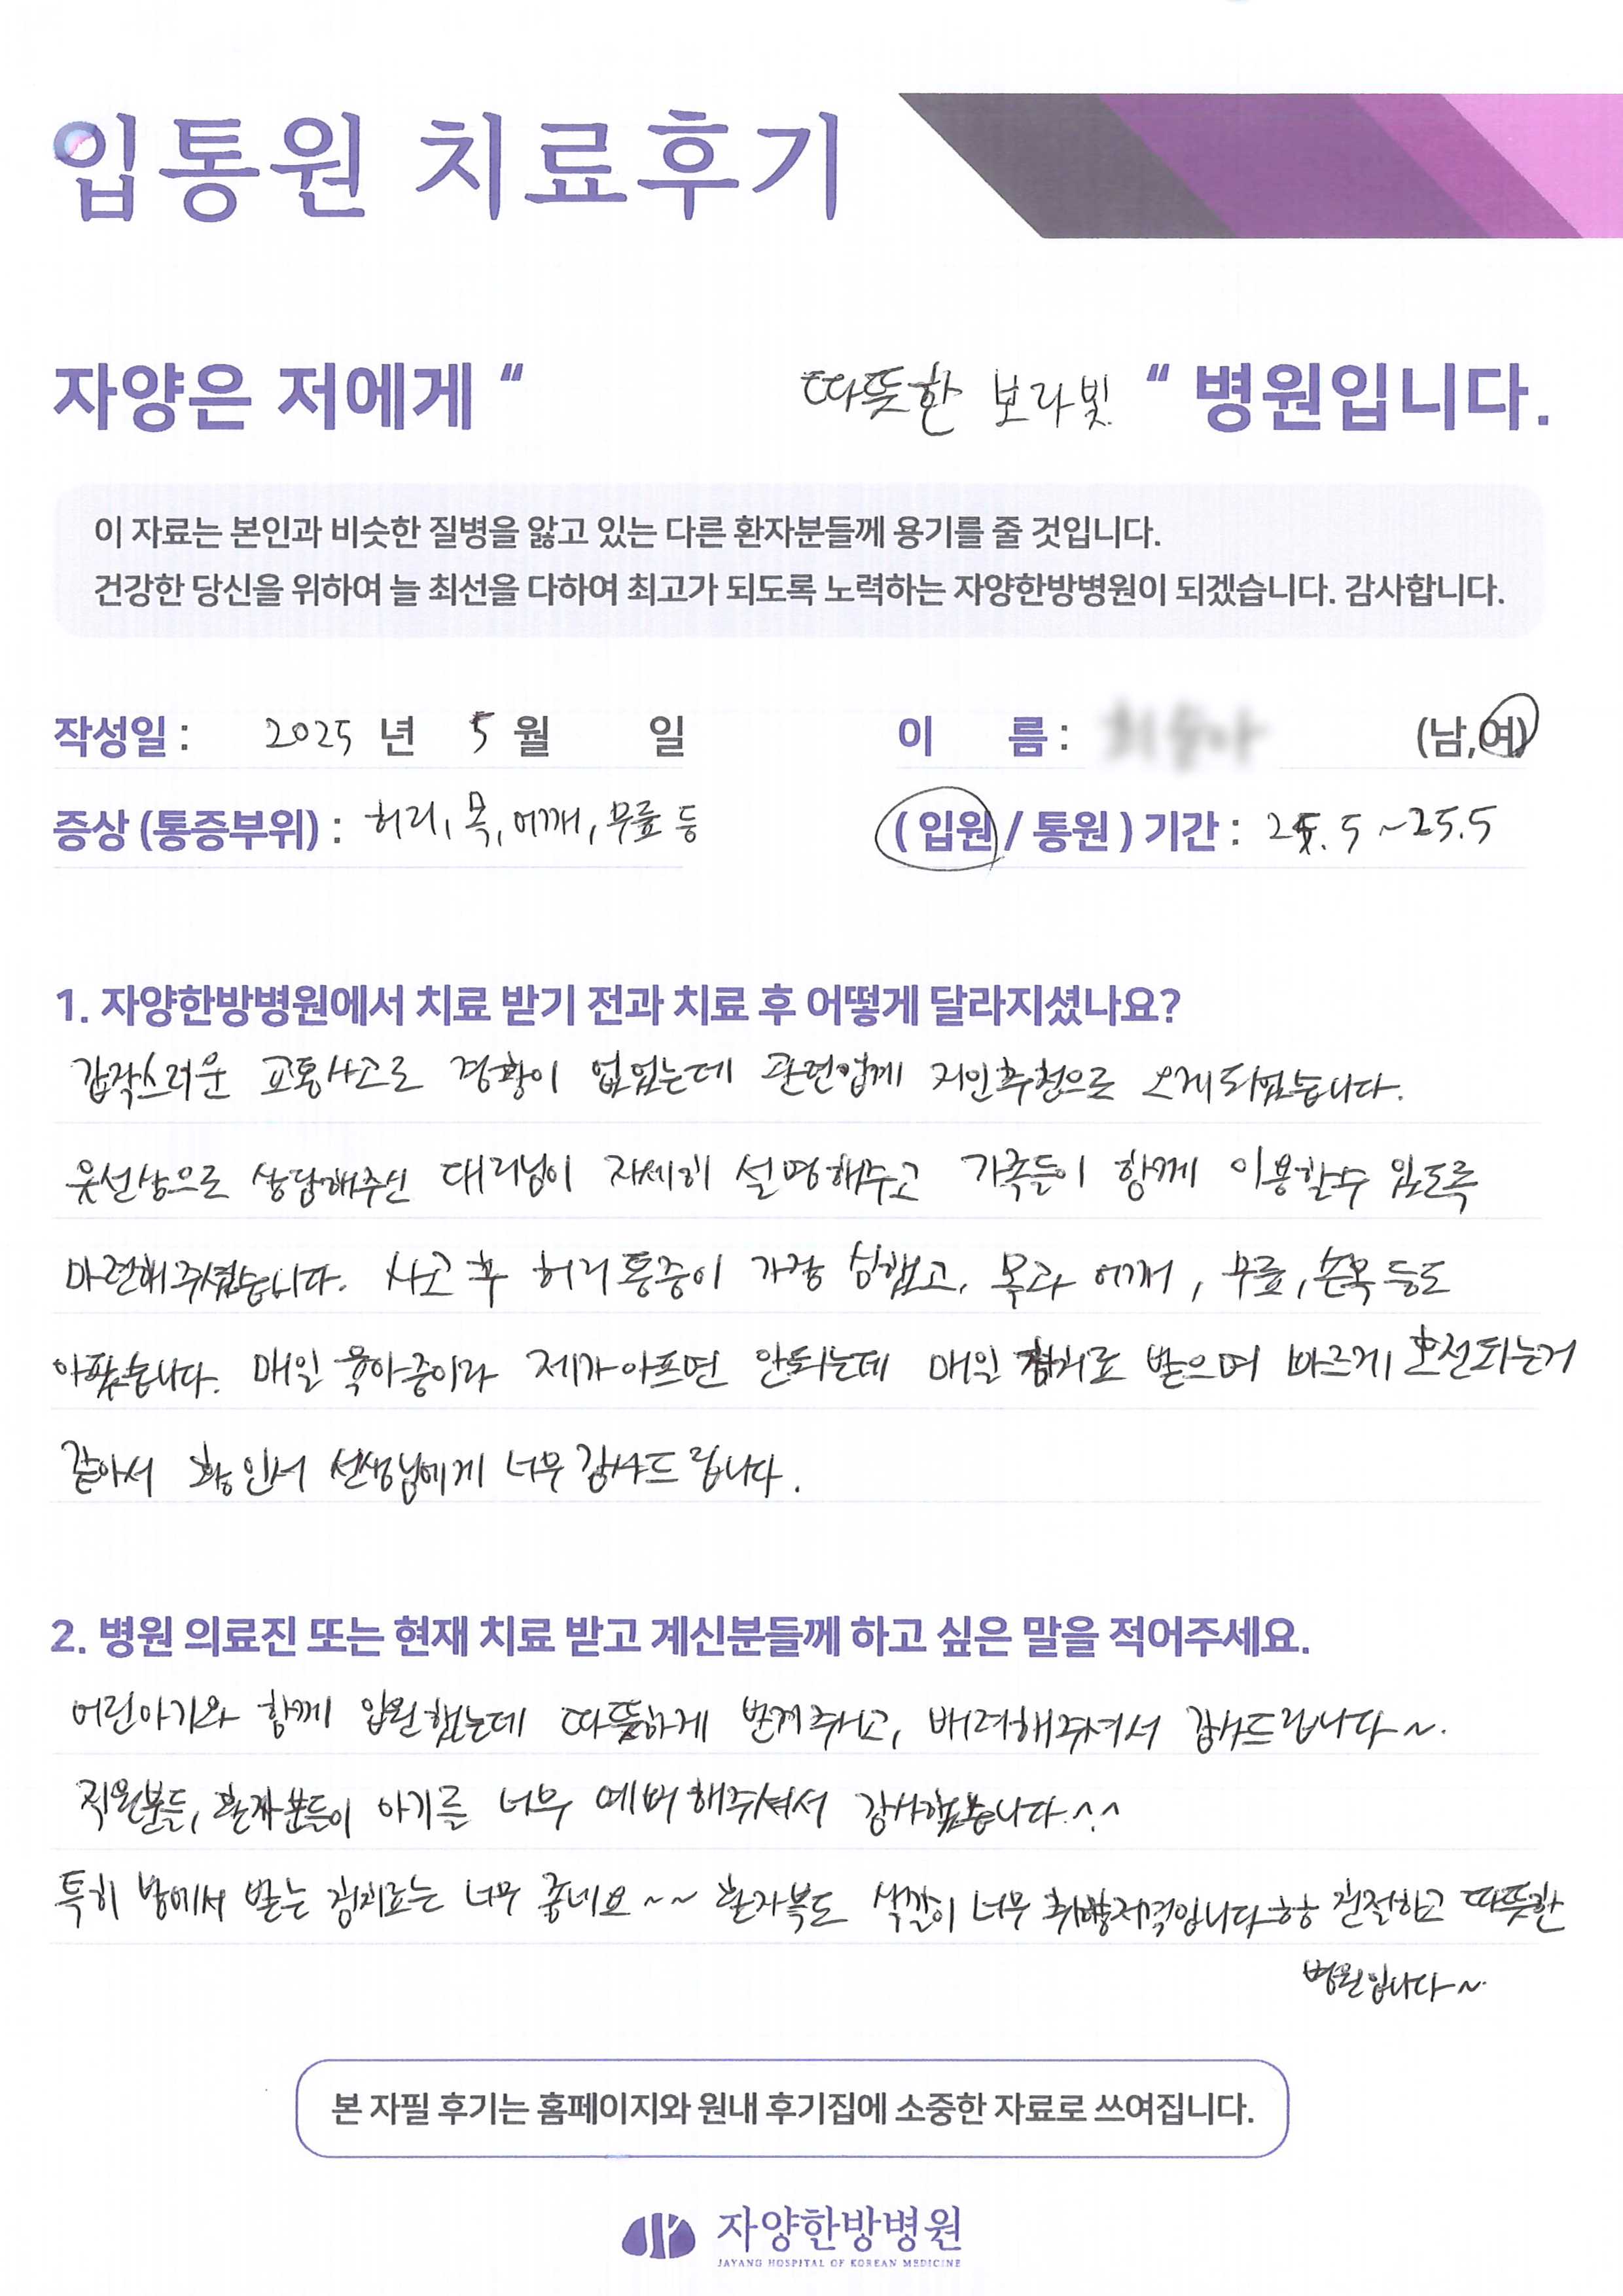 입통원 치료후기
자양은 저에게 “ 따뜻한 보라빛 “ 병원입니다.
이 자료는 본인과 비슷한 질병을 앓고 있는 다른 환자분들께 용기를 줄 것입니다.
건강한 당신을 위하여 늘 최선을 다하여 최고가 되도록 노력하는 자양한방병원이 되겠습니다. 감사합니다.
작성일 : 2025 년 5 월 일 이 름 : (남,여)
증상 (통증부위) : 허리, 목, 어깨, 무릎 등 ( 입원 / 통원 ) 기간 : 25. 5 ~25.5
1. 자양한방병원에서 치료 받기 전과 치료 후 어떻게 달라지셨나요?
갑작스러운 교통사고로 경황이 없었는데 관련업계 지인추천으로 오게되었습니다.
유선상으로 상담해주신 대리님이 자세히 설명해주고 가족들이 함께 이용할수 있도록
마련해주셨습니다. 사고 후 허리통증이 가장 심했고, 목과 어깨, 무릎, 손목 등도
아팠습니다. 매일 육아중이라 제가아프면 안되는데 매일 침치료 받으며 빠르게 호전되는거
같아서 황인서 선생님에게 너무 감사드립니다.
2. 병원 의료진 또는 현재 치료 받고 계신분들께 하고 싶은 말을 적어주세요.
어린아기와 함께 입원했는데 따뜻하게 반겨주시고, 배려해주셔서 감사드립니다~.
직원분들, 환자분들이 아기를 너무 예뻐해주셔서 감사했습니다.^^
특히 방에서 받는 침치료는 너무 좋네요~~ 환자복도 색깔이 너무 취향저격입니다 친절하고 따뜻한
병원입니다~
본 자필 후기는 홈페이지와 원내 후기집에 소중한 자료로 쓰여집니다.
자양한방병원
JAYANG HOSPITAL OF KOREAN MEDICINE